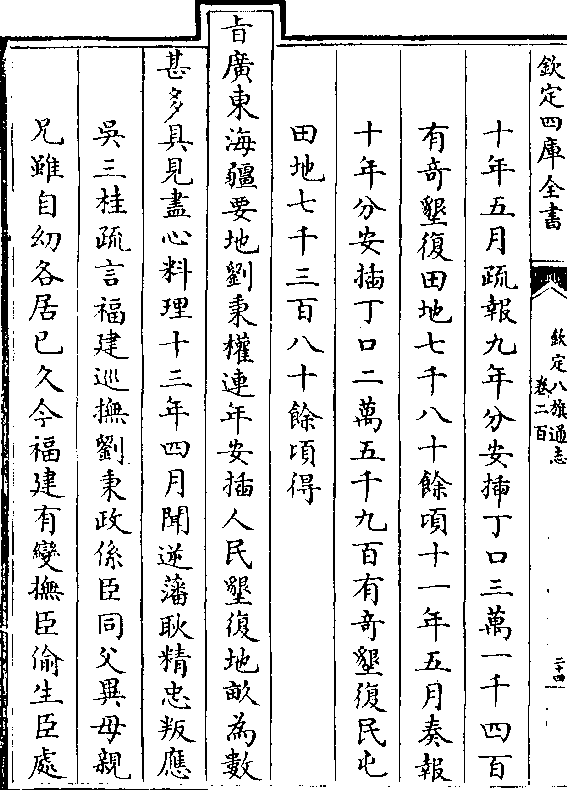 欽定四庫全書
欽定八旗通志
卷二百
二十四
十年五月疏報九年分安揷丁口三萬一千四百
有奇墾復田地七千八十餘頃十一年五月奏報
十年分安揷丁口二萬五千九百有奇墾復民屯
田地七千三百八十餘頃得
㫖廣東海疆要地劉秉權連年安揷人民墾復地畝為數
甚多具見盡心料理十三年四月聞逆藩耿精忠叛應
吳三桂疏言福建巡撫劉秉政係臣同父異母親
兄雖自幼各居已久今福建有變撫臣偷生臣處